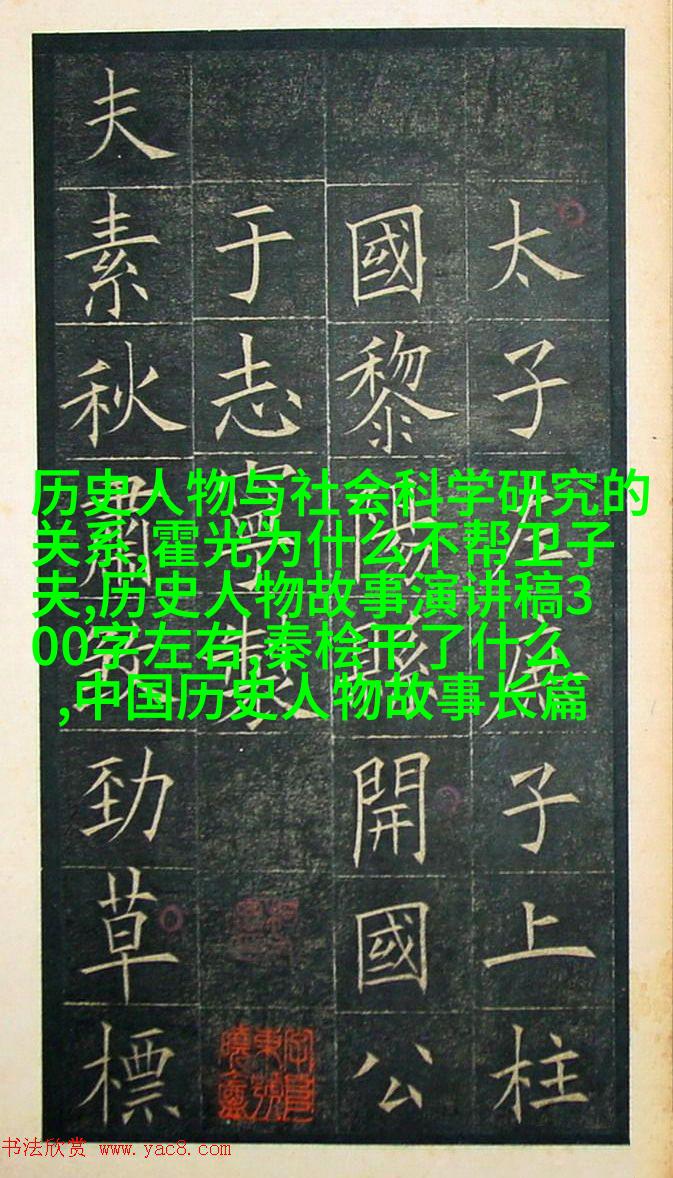 太子左庶子上柱
國黎陽縣開國公
于志寧製
夫素秋肅勁草標
历史人物与社会科学研究的
关系,霍光为什么不帮卫子
夫,历史人物故事演讲稿3
00字左右,秦桧干了什么
,中国历史人物故事长篇
书法欣赏 www.yac8.com